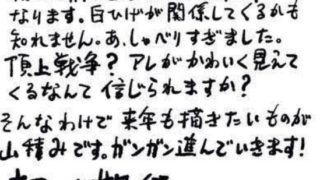 なります。白ひげが関係してくるかも
知れません。あ、しゃべりすぎました。
頂上戦争？アレがかわいく見えて
くるなんて信じられますか？
そんなわけで来年も描きたいものが
山積みです。ガンガン進んでいきます！